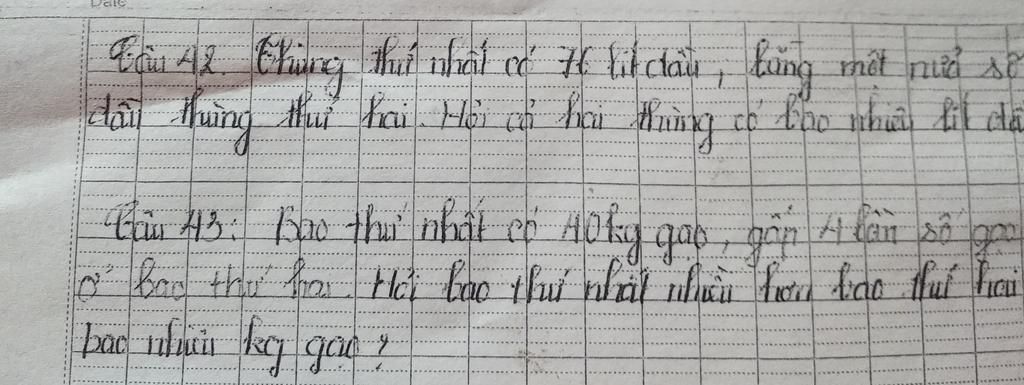 Date
Câu 42. Thùng thứ nhất có 76 lít dầu, bằng một nửa số
dầu thùng thứ hai. Hỏi cả hai thùng có bao nhiêu lít dầ
Câu 43: Bao thứ nhất có 40kg gạo, gấp 4 lần số gạo
ở bao thứ hai. Hỏi bao thứ nhất nhiều hơn bao thứ hai
bao nhiêu kg gạo?